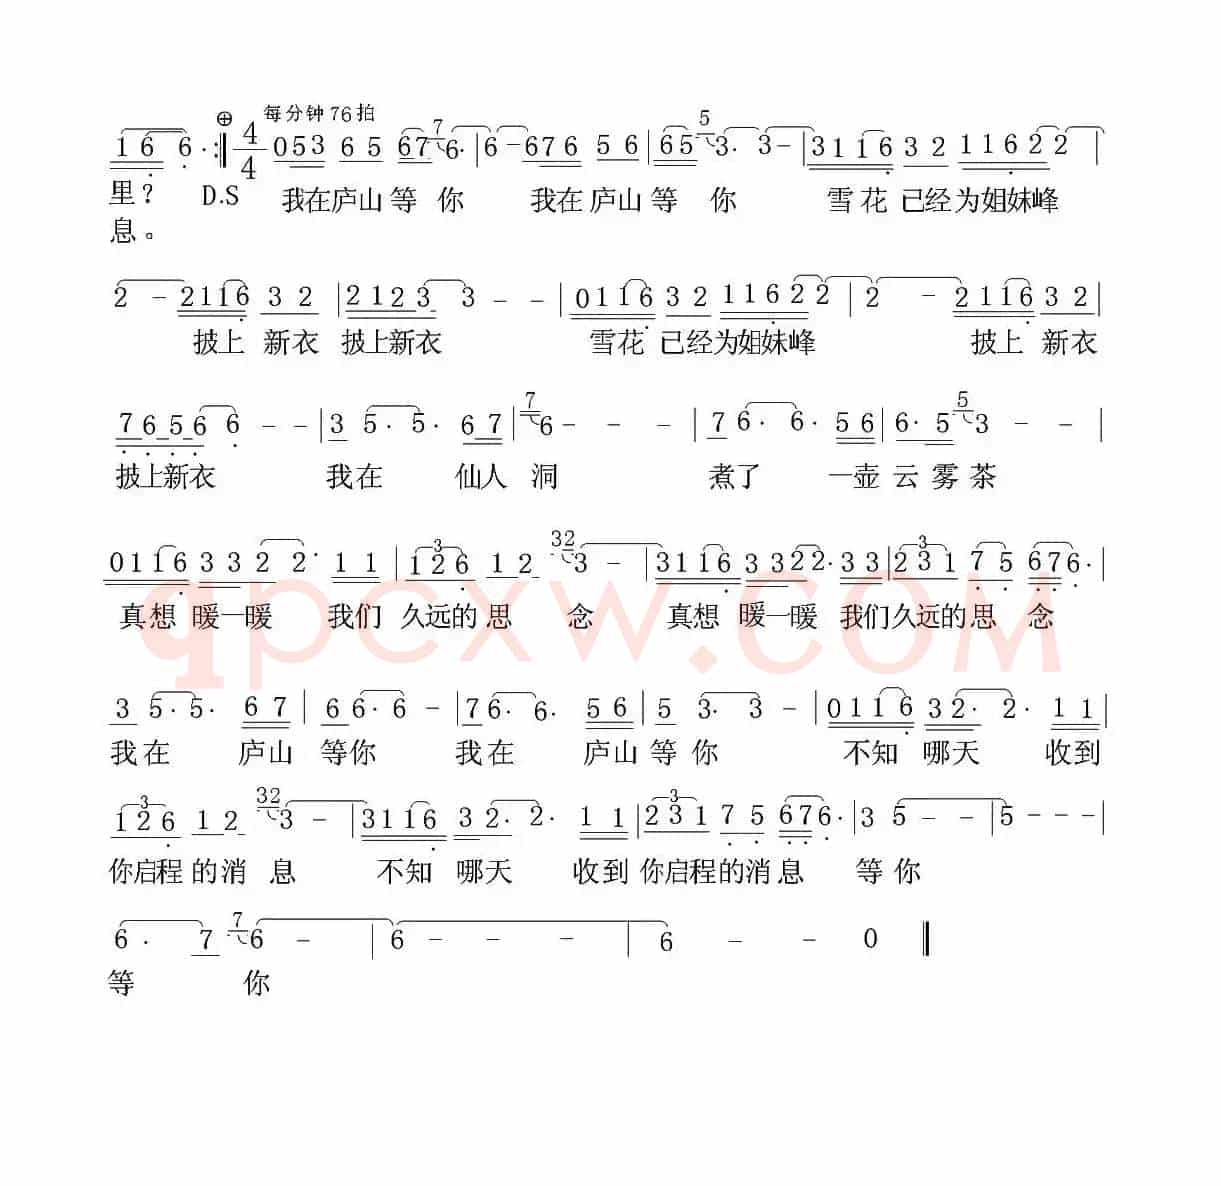 ⊕ 每分钟 76 拍
1 6 6 · :‖ 4/4 0 5 3 6 5 6 7 7 6 · | 6 – 6 7 6 5 6 | 6 5 5 3 · 3 – | 3 1 1 6 3 2 1 1 6 2 2 |
里？ D.S 我在庐山等你 我在庐山等你 雪花已经为姐妹峰
息。
2 – 2 1 1 6 3 2 | 2 1 2 3 3 – – | 0 1 1 6 3 2 1 1 6 2 2 | 2 – 2 1 1 6 3 2 |
披上 新衣 披上新衣 雪花 已经为姐妹峰 披上 新衣
7 6 5 6 6 – – | 3 5 · 5 · 6 7 | 7 6 – – – | 7 6 · 6 · 5 6 | 6 · 5 5 3 – – |
披上新衣 我在 仙人 洞 煮了 一壶 云 雾 茶
0 1 1 6 3 3 2 2 · 1 1 | 3 1 2 6 1 2 32 3 – | 3 1 1 6 3 3 2 2 · 3 3 | 3 2 3 1 7 5 6 7 6 · |
真想 暖一暖 我们 久远的 思 念 真想 暖一暖 我们久远的思 念
3 5 · 5 · 6 7 | 6 6 · 6 – | 7 6 · 6 · 5 6 | 5 3 · 3 – | 0 1 1 6 3 2 · 2 · 1 1 |
我在 庐山 等你 我在 庐山等你 不知 哪天 收到
3 1 2 6 1 2 32 3 – | 3 1 1 6 3 2 · 2 · 1 1 | 3 2 3 1 7 5 6 7 6 · | 3 5 – – | 5 – – – |
你启程 的消 息 不知 哪天 收到 你启程的消息 等你
6 · 7 7 6 – | 6 – – – | 6 – – 0 ‖
等 你
qpcxw.COM